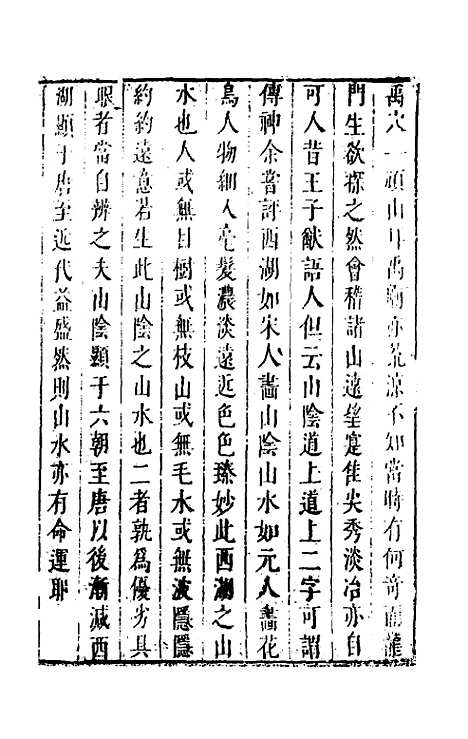 禹穴一頑山耳禹廟亦荒凉不知當時有何奇而龍
門生欲探之然會稽諸山遠望寔佳尖秀淡冶亦自
可人昔王子猷語人但云山陰道上道上二字可謂
傳神余嘗評西湖如宋人畵山陰山水如元人畵花
鳥人物細入毫髮濃淡遠近色色臻妙此西湖之山
水也人或無目樹或無枝山或無毛水或無波隱隱
約約遠意若生此山陰之山水也二者孰爲優劣具
眼者當自辨之夫山陰顯于六朝至唐以後漸減西
湖顯于唐至近代益盛然則山水亦有命運耶